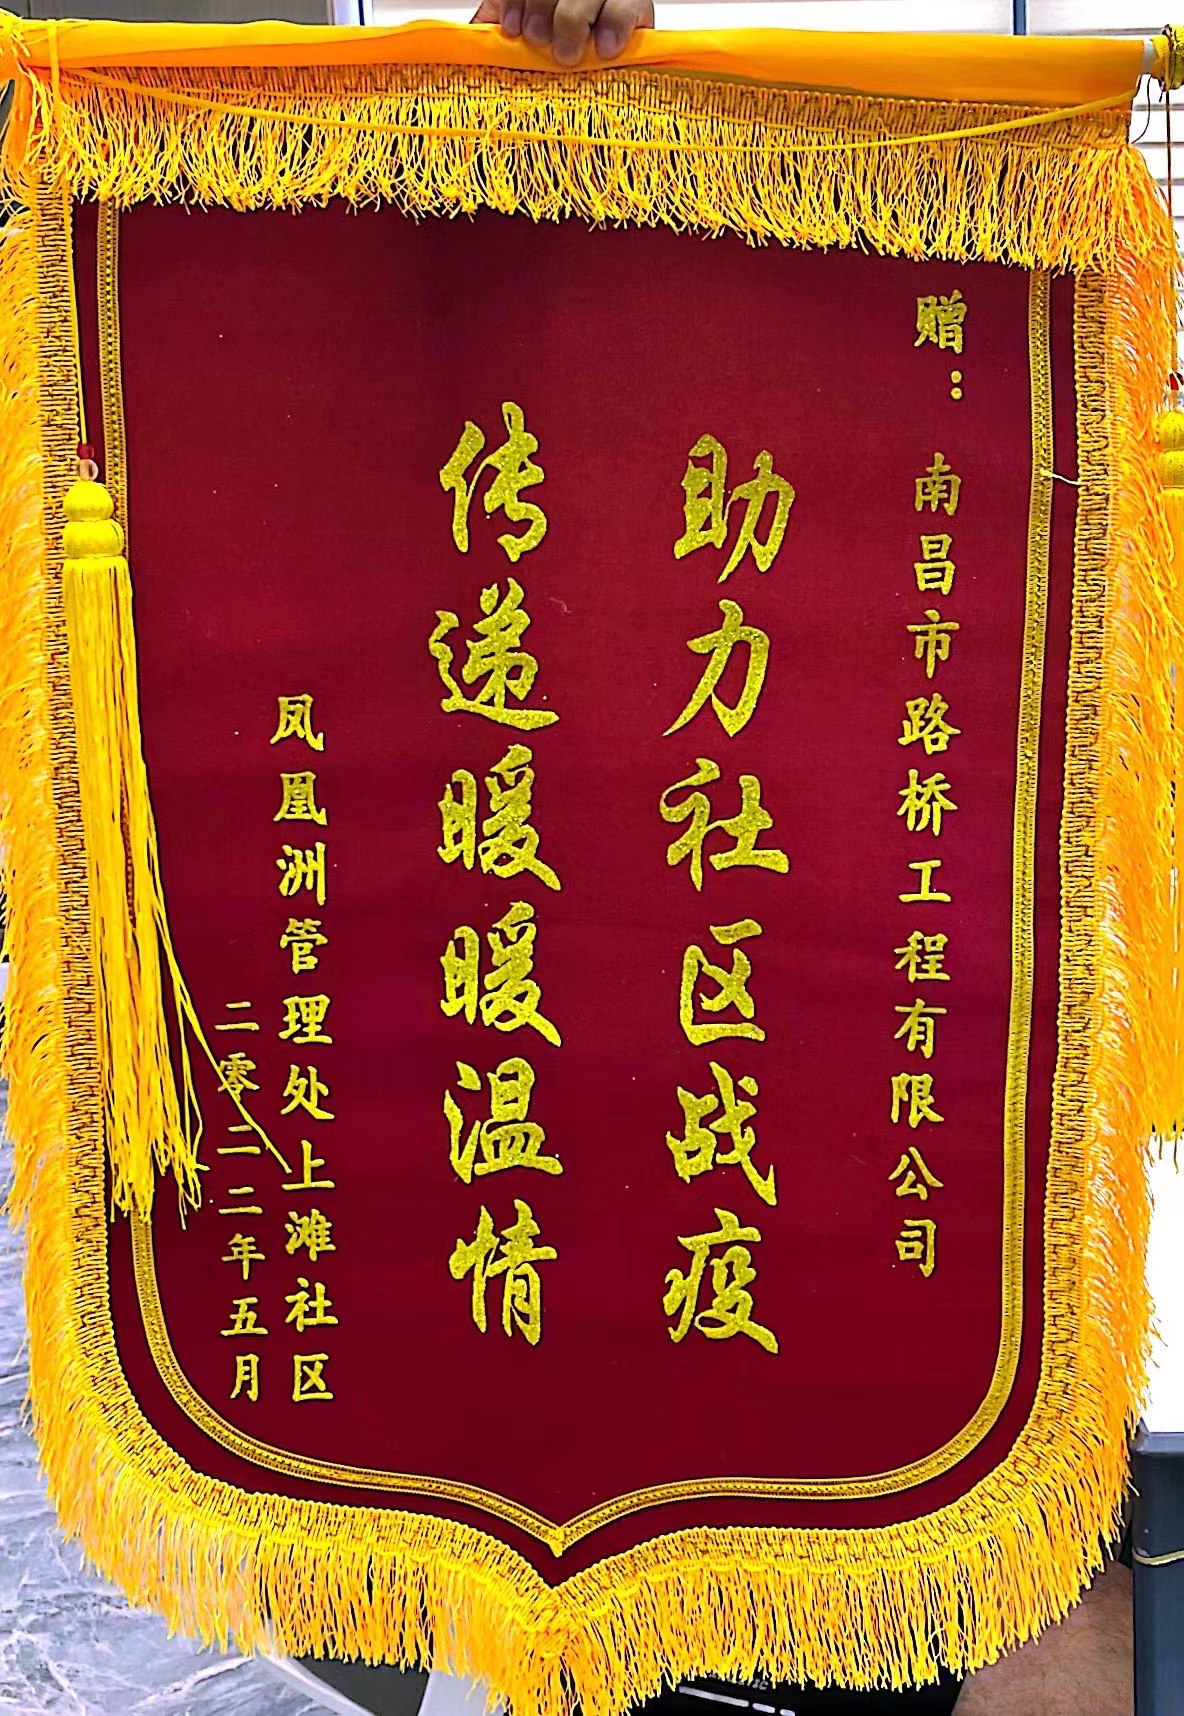 赠：南昌市路桥工程有限公司
助力社区战疫
传递暖暖温情
凤凰洲管理处上滩社区
二零二二年五月